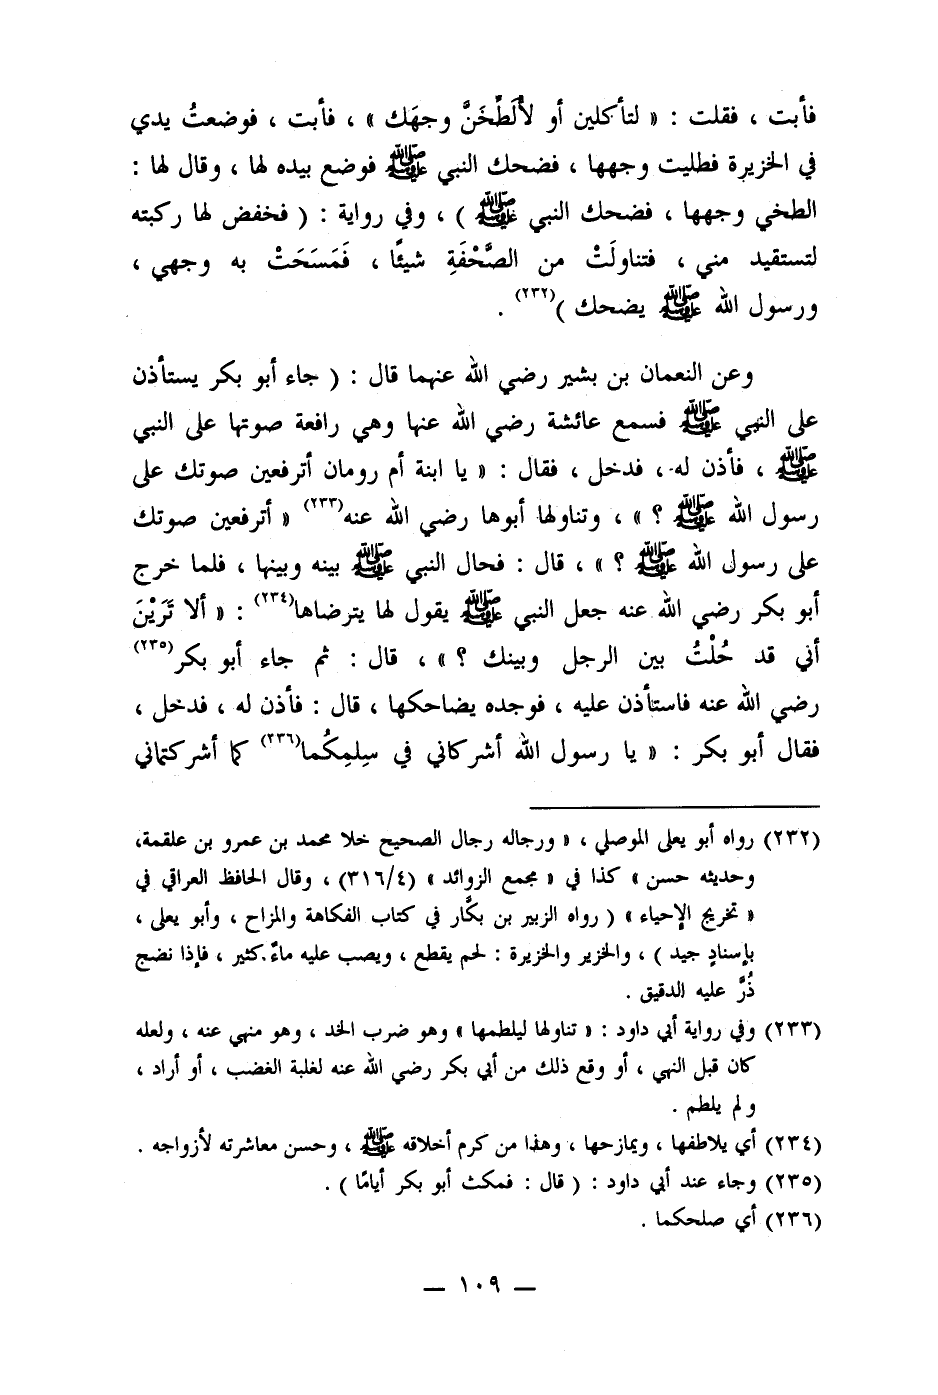 فأبت ، فقلت : « لتأكلين أو لأُلَطِّخَنَّ وجهَك » ، فأبت ، فوضعتُ يدي
في الخزيرة فطليت وجهها ، فضحك النبي ﷺ فوضع بيده لها ، وقال لها :
الطخي وجهها ، فضحك النبي ﷺ ) ، وفي رواية : ( فخفض لها ركبته
لتستقيد مني ، فتناولَتْ من الصَّحْفَةِ شيئًا ، فَمَسَحَتْ به وجهي ،
ورسول الله ﷺ يضحك )(٢٣٢) .
وعن النعمان بن بشير رضي الله عنهما قال : ( جاء أبو بكر يستأذن
على النبي ﷺ فسمع عائشة رضي الله عنها وهي رافعة صوتها على النبي
ﷺ ، فأذن له ، فدخل ، فقال : « يا ابنة أم رومان أترفعين صوتك على
رسول الله ﷺ ؟ » ، وتناولها أبوها رضي الله عنه(٢٣٣) « أترفعين صوتك
على رسول الله ﷺ ؟ » ، قال : فحال النبي ﷺ بينه وبينها ، فلما خرج
أبو بكر رضي الله عنه جعل النبي ﷺ يقول لها يترضاها(٢٣٤) : « ألا تَرَيْنَ
أني قد حُلْتُ بين الرجل وبينك ؟ » ، قال : ثم جاء أبو بكر(٢٣٥)
رضي الله عنه فاستأذن عليه ، فوجده يضاحكها ، قال : فأذن له ، فدخل ،
فقال أبو بكر : « يا رسول الله أشركاني في سِلمِكُما(٢٣٦) كما أشركتماني
(٢٣٢) رواه أبو يعلى الموصلي ، « ورجاله رجال الصحيح خلا محمد بن عمرو بن علقمة،
وحديثه حسن » كذا في « مجمع الزوائد » (٣١٦/٤) ، وقال الحافظ العراقي في
« تخريج الإحياء » ( رواه الزبير بن بكَّار في كتاب الفكاهة والمزاح ، وأبو يعلى ،
بإسنادٍ جيد ) ، والخزير والخزيرة : لحم يقطع ، ويصب عليه ماءٌ كثير ، فإذا نضج
ذُرَّ عليه الدقيق .
(٢٣٣) وفي رواية أبي داود : « تناولها ليلطمها » وهو ضرب الخد ، وهو منهي عنه ، ولعله
كان قبل النهي ، أو وقع ذلك من أبي بكر رضي الله عنه لغلبة الغضب ، أو أراد ،
ولم يلطم .
(٢٣٤) أي يلاطفها ، ويمازحها ، وهذا من كرم أخلاقه ﷺ ، وحسن معاشرته لأزواجه .
(٢٣٥) وجاء عند أبي داود : ( قال : فمكث أبو بكر أيامًا ) .
(٢٣٦) أي صلحكما .
— ١٠٩ —